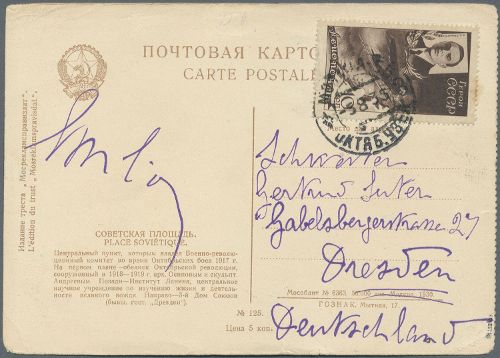 ПОЧТОВАЯ КАРТО
CARTE POSTALE
Герои
СССР
10
ОКТЯБ.
Место для
Издание треста „Мосрекламсправиздат".
L'édition du trust „Mosréklamspravisdat".
СОВЕТСКАЯ ПЛОЩАДЬ.
PLACE SOVIÉTIQUE.
Центральный пункт, которым владел Военно-револю-
ционный комитет во время Октябрьских боев 1917 г.
На первом плане—обелиск Октябрьской революции,
сооруженный в 1918—1919 г. арх. Осиповым и скульпт.
Андреевым. Позади—Институт Ленина, центральное
научное учреждение по изучению жизни и деятель-
ности великого вождя. Направо—3-й Дом Союзов
(бывш. гост. „Дрезден").
№ 125.
Цена 5 коп.
Schwester
Gertrud Suter
Gabelsbergerstrasse 27
Dresden
Мособлит № 6363
ГОЗНАК. Мытная, 17
Deutschland